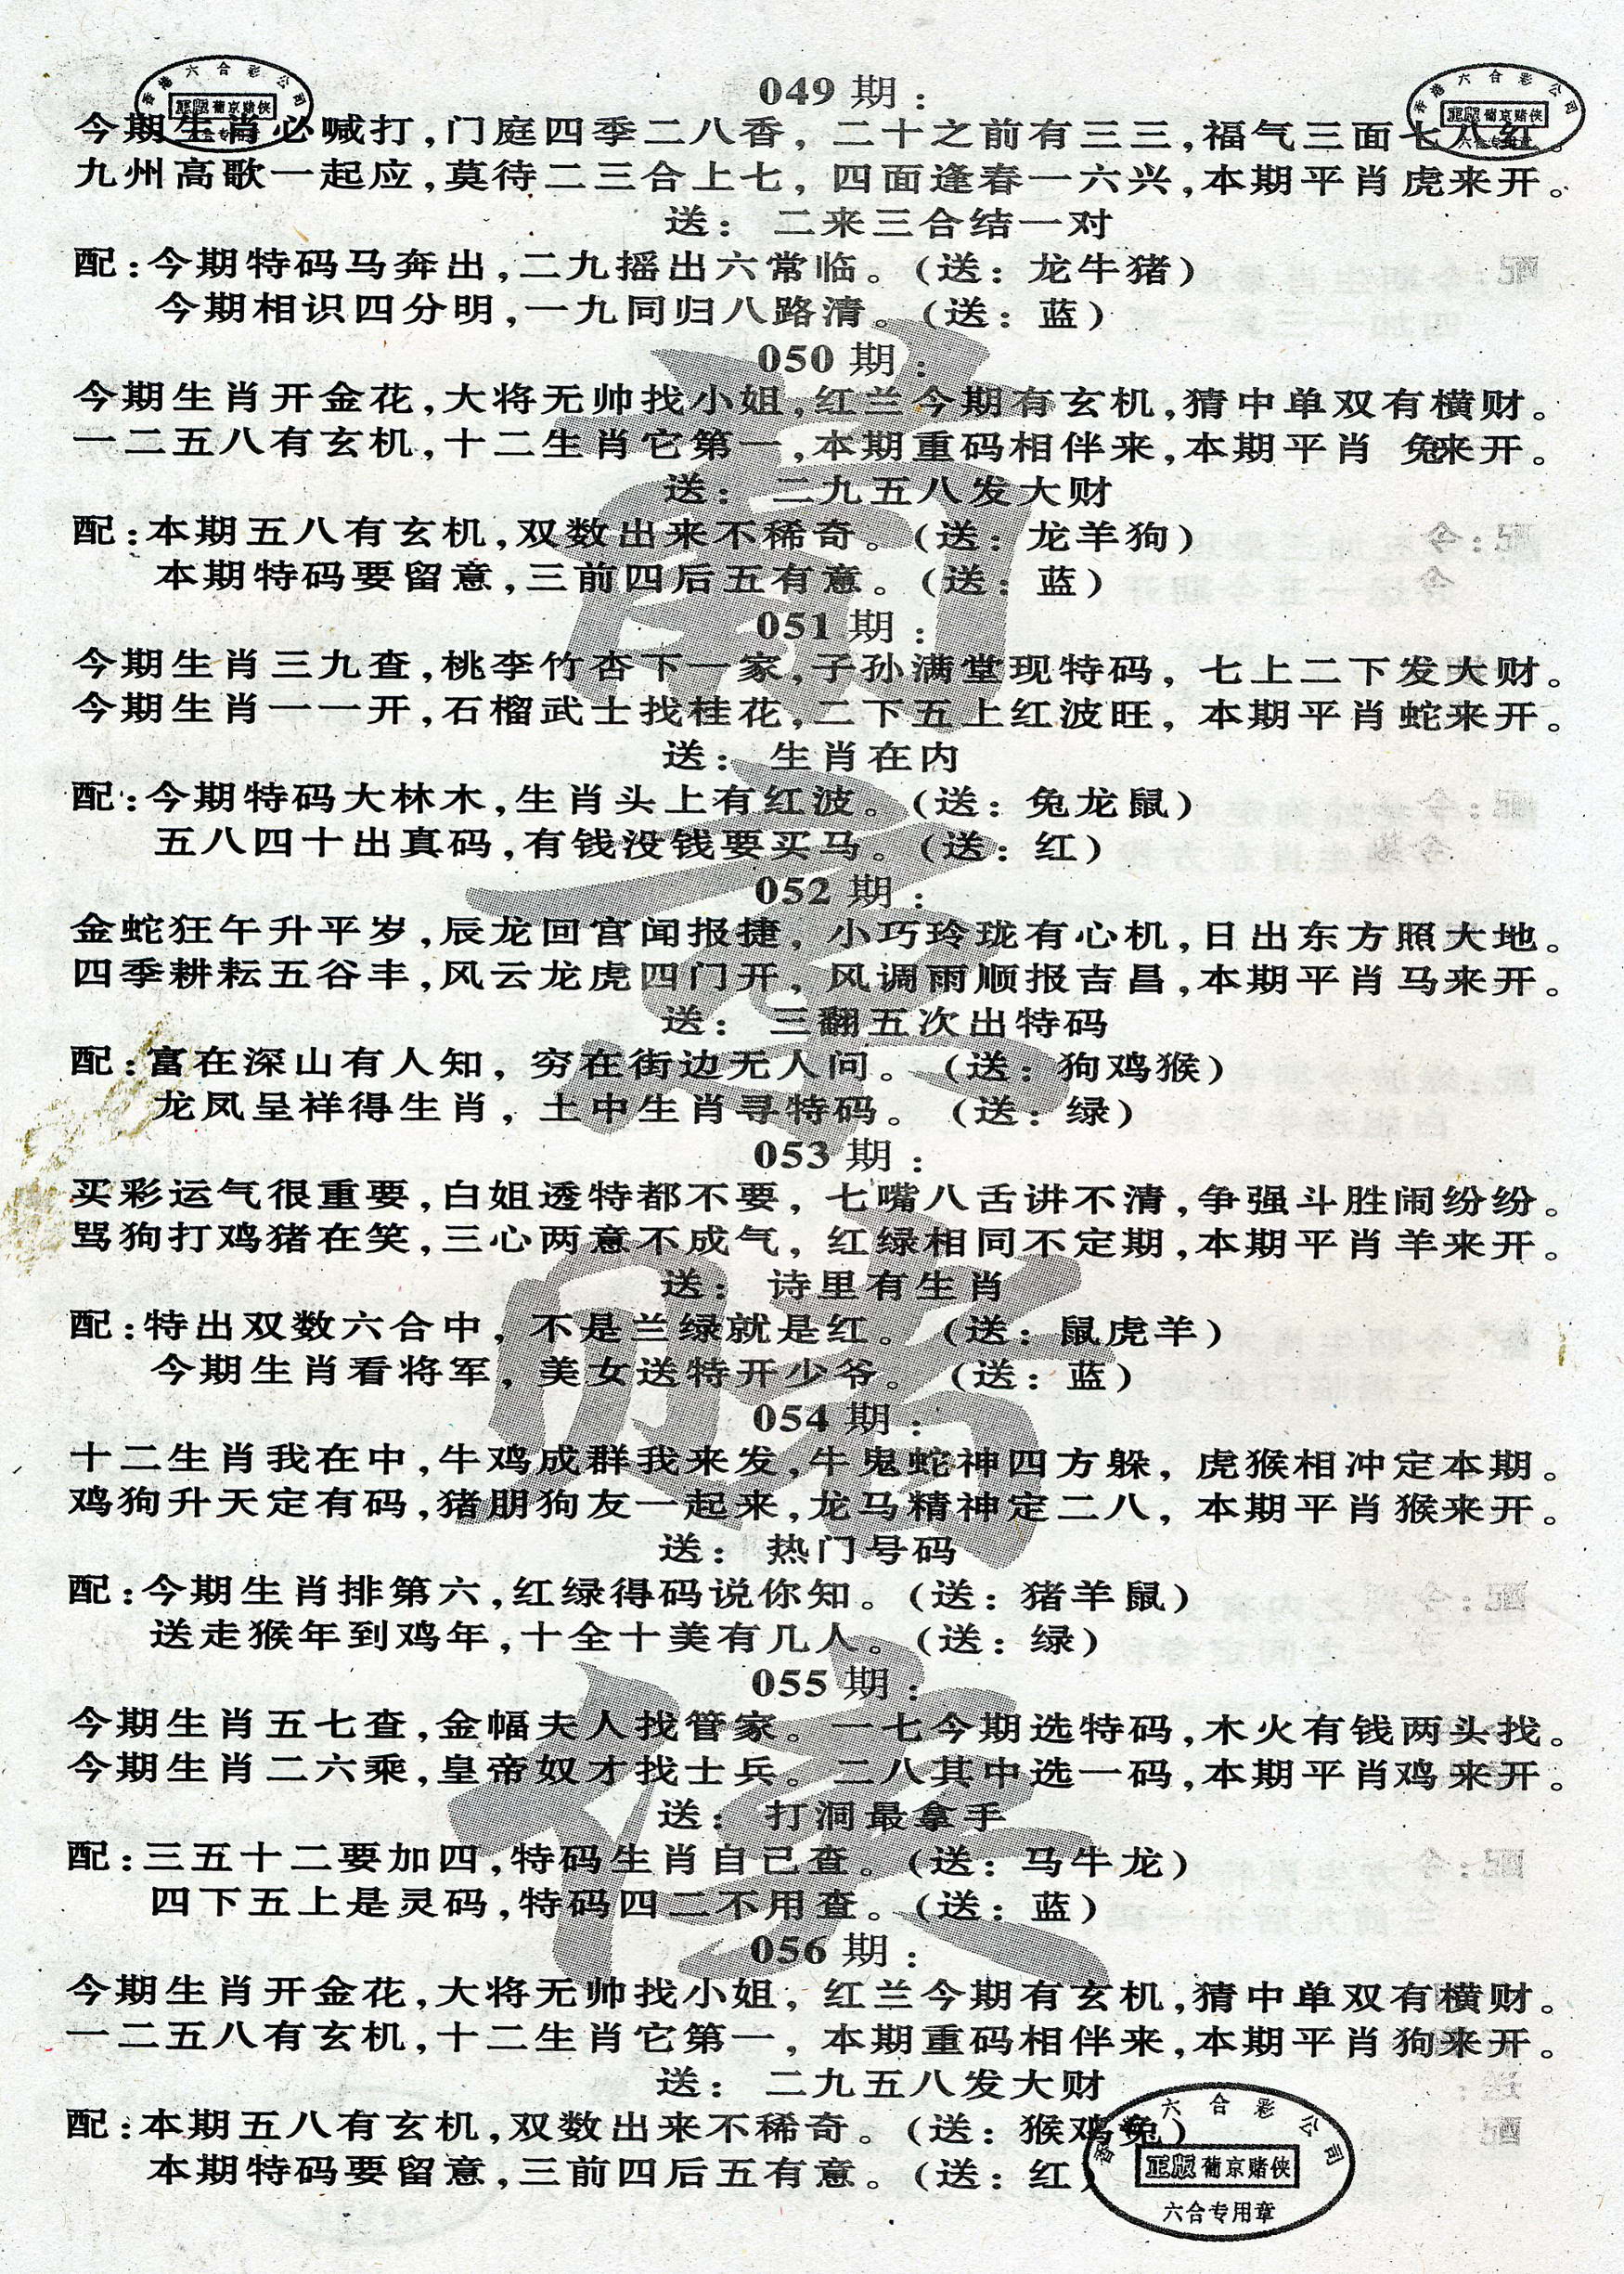 049期：
今期生肖必喊打,门庭四季二八香, 二十之前有三三,福气三面七八红。
九州高歌一起应,莫待二三合上七, 四面逢春一六兴,本期平肖虎来开。
送： 二来三合结一对
配:今期特码马奔出,二九摇出六常临。(送: 龙牛猪)
今期相识四分明,一九同归八路清。(送: 蓝)
050期：
今期生肖开金花,大将无帅找小姐,红兰今期有玄机,猜中单双有横财。
一二五八有玄机,十二生肖它第一,本期重码相伴来,本期平肖 兔来开。
送： 二九五八发大财
配:本期五八有玄机,双数出来不稀奇。(送: 龙羊狗)
本期特码要留意,三前四后五有意。(送: 蓝)
051期：
今期生肖三九查,桃李竹杏下一家,子孙满堂现特码, 七上二下发大财。
今期生肖一一开,石榴武士找桂花,二下五上红波旺, 本期平肖蛇来开。
送： 生肖在内
配:今期特码大林木,生肖头上有红波。(送: 兔龙鼠)
五八四十出真码,有钱没钱要买马。(送: 红)
052期：
金蛇狂午升平岁,辰龙回宫闻报捷, 小巧玲珑有心机,日出东方照大地。
四季耕耘五谷丰,风云龙虎四门开, 风调雨顺报吉昌,本期平肖马来开。
送： 三翻五次出特码
配:富在深山有人知, 穷在街边无人问。 (送: 狗鸡猴)
龙凤呈祥得生肖, 土中生肖寻特码。 (送: 绿)
053期：
买彩运气很重要,白姐透特都不要, 七嘴八舌讲不清,争强斗胜闹纷纷。
骂狗打鸡猪在笑,三心两意不成气, 红绿相同不定期,本期平肖羊来开。
送： 诗里有生肖
配:特出双数六合中, 不是兰绿就是红。 (送: 鼠虎羊)
今期生肖看将军, 美女送特开少爷。 (送: 蓝)
054期：
十二生肖我在中,牛鸡成群我来发,牛鬼蛇神四方躲, 虎猴相冲定本期。
鸡狗升天定有码,猪朋狗友一起来,龙马精神定二八, 本期平肖猴来开。
送： 热门号码
配:今期生肖排第六,红绿得码说你知。(送: 猪羊鼠)
送走猴年到鸡年,十全十美有几人。(送: 绿)
055期：
今期生肖五七查,金幅夫人找管家。一七今期选特码,木火有钱两头找。
今期生肖二六乘,皇帝奴才找士兵。二八其中选一码,本期平肖鸡来开。
送： 打洞最拿手
配:三五十二要加四,特码生肖自己查。(送: 马牛龙)
四下五上是灵码,特码四二不用查。(送: 蓝)
056期：
今期生肖开金花,大将无帅找小姐, 红兰今期有玄机,猜中单双有横财。
一二五八有玄机,十二生肖它第一, 本期重码相伴来,本期平肖狗来开。
送： 二九五八发大财
配:本期五八有玄机,双数出来不稀奇。(送: 猴鸡兔)
本期特码要留意,三前四后五有意。(送: 红)
香港六合彩公司
正版葡京赌侠
六合专用章